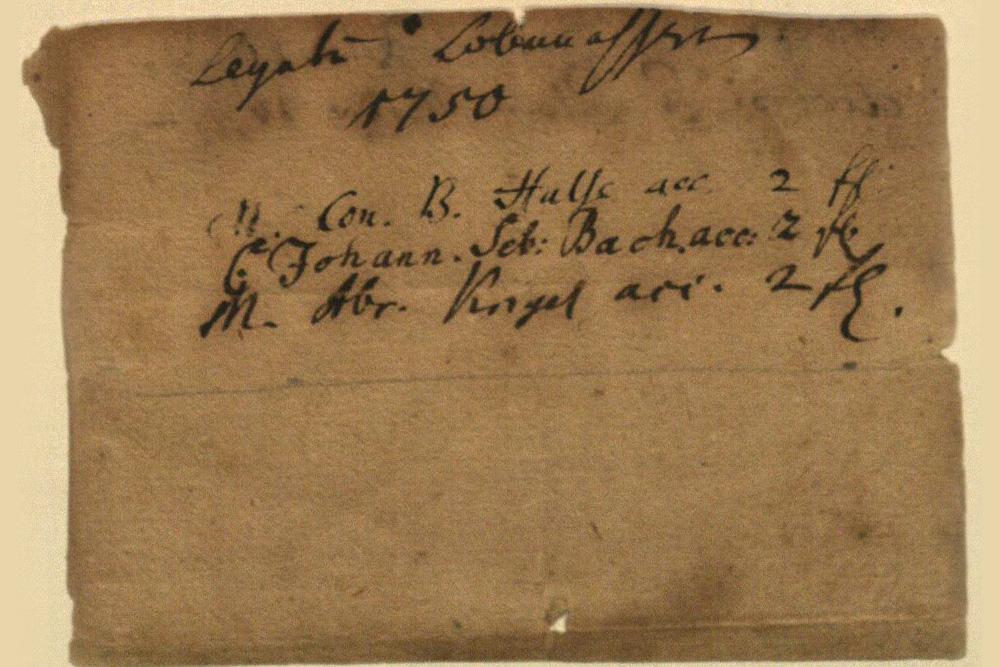 Legatũ Lobwasser
1750
M. Con. B. Hulse acc. 2 fl.
C. Johann. Seb: Bach. acc: 2 fl
M. Abr. Krigel acc. 2 fl.